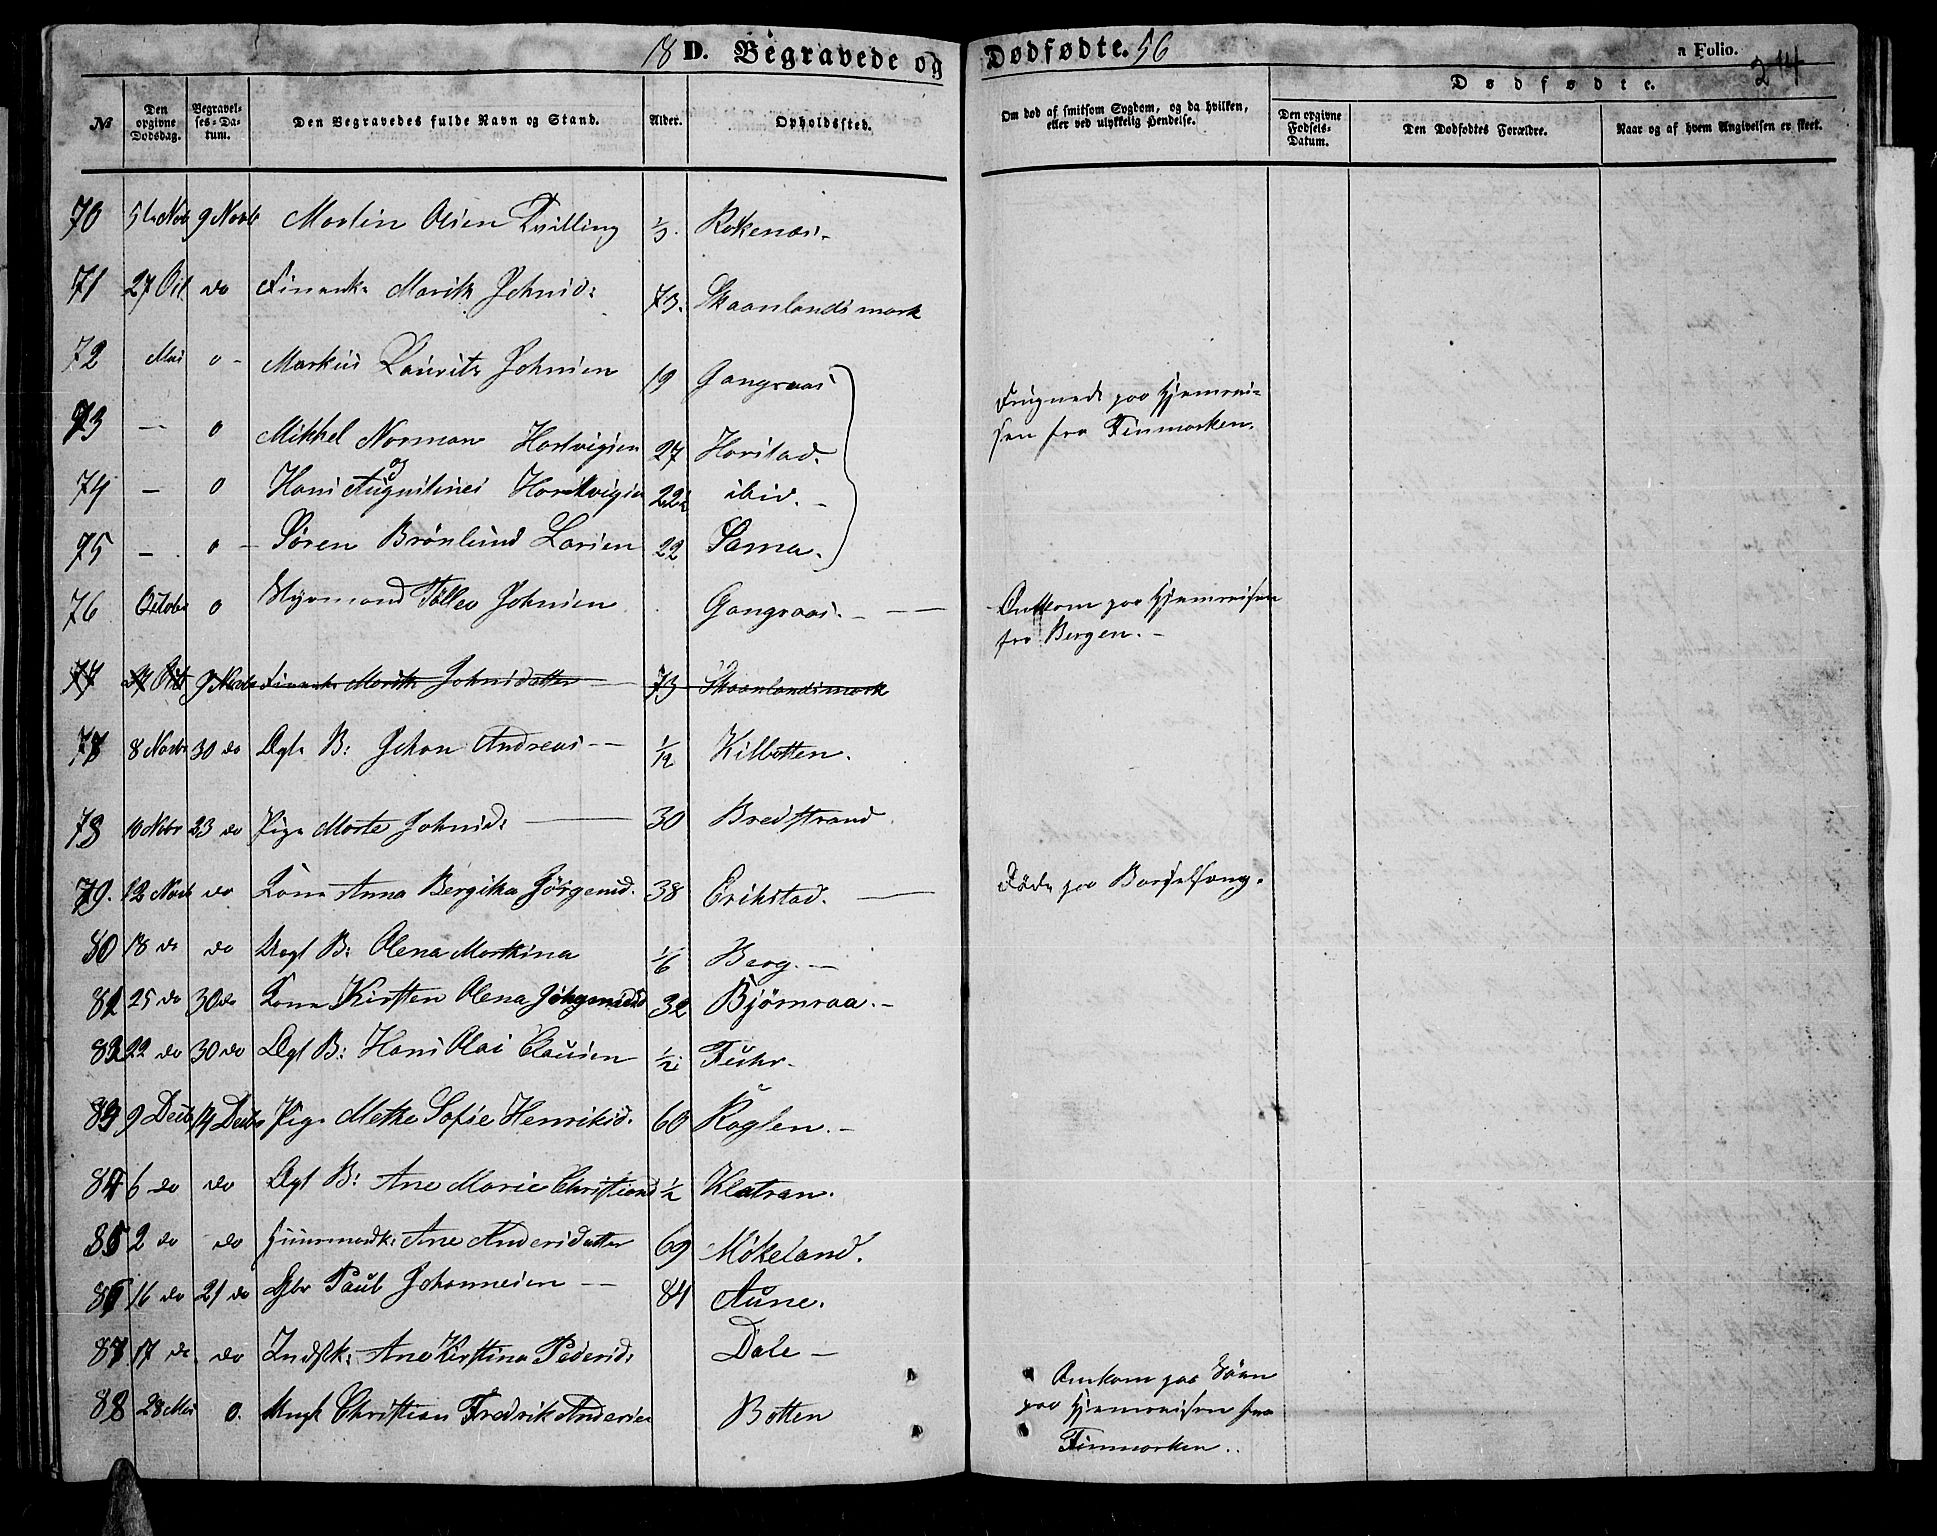 18 D. Begravede og Dødfødte. 56
n Folio.
244
№ Den opgivne Dødsdag. Begravelses-Datum. Den Begravedes fulde Navn og Stand. Alder. Opholdssted. Om død af smitsom Sygdom, og da hvilken, eller ved ulykkelig Hendelse.
Dødfødte.
Den opgivne Fødsels-Datum. Den Dødfødtes Forældre. Naar og af hvem Angivelsen er skeet.
70 5te Novb 9 Novb Martin Olsen Tvilling Rokenæs
71 27 Oct do Finenk. Marith Johnsd: 73. Skaanlandsmark
72 Mai 0 - Markus Laurits Johnsen 19 Gangsaas
73 — 0 Mikkel Norman Hartvigsen 27 Harstad.
74 — 0 og Hans Augustinus Hartvigsen 22 ibid. -
75 — 0 - Søren Brønlund Larsen 22 Sama.
paa Hjemreisen fra Finmarken.
76 Octobr 0 Tollev Johnsen Gangsaas. —
Omkom paa Hjemreisen
fra Bergen. -
77 27 Octb 9 Novb Finenk. Marith Johnsdatter 73 Skaanlandsmark
77 8 Novbr 30 do Dgt. B: Johan Andreas — 1/2 Kilbotten.
78 10 Nvbr 23 do Pige Marte Johnsd: 30 Bredstrand
79. 12 Novb do Kone Anna Bergitha Jørgensd. 38 Erikstad. — Døde paa Barselseng.
80 18 do do Uægt B: Olena Martina 1/6 Berg. —
81 25 do 30 do Kone Kirsten Olena 32 Bjørnraa. -
82 22 do 30 do Dgt B: Hans Olai Clausen 1/2 Fuhr.
83 9 Decb 14 Decbr Pige Methe Sofie Henriksd. 60 Røglen. -
84 6 do do Dgt B: Ane Marie Christiansd 1/2 Klatran.
85 2 do do Huusmandk: Ane Andersdatter 69 Møkeland.
86 16 do 21 do Paul Johannesen — 84 Aune.
87 17 do do Indstk: Ane Kirstina Pedersd: Dale —
88 28 Mai 0. Ungk Christian Fredrik Andersen Botten
Omkom paa Søen
paa Hjemreisen fra
Finmarken.